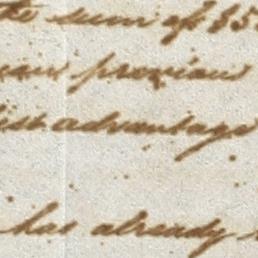 the sum of $5
previous
disadvantage
has already